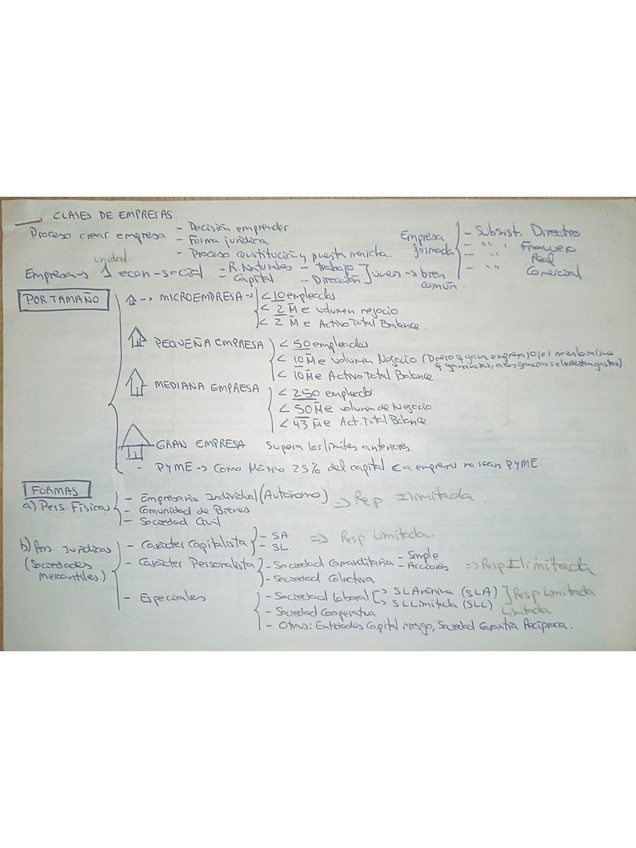 CLASES DE EMPRESAS.
Proceso crear empresa - Decisión emprender
- Forma jurídica
- Proceso constitución y puesta marcha.
Empresa formada - Subsist. Directivo
- " " Financ
- " " Real
- " " Comercial
unidad
Empresa → 1 econ-social = R. Naturales - Trabajo
Capital - Dirección ] Unen → bien común.
POR TAMAÑO
--> MICROEMPRESA -> < 10 empleados
< 2 M€ volumen negocio
< 2 M€ Activo Total Balance.
PEQUEÑA EMPRESA < 50 empleados
< 10 M€ volumen Negocio
< 10 M€ Activo Total Balance.
MEDIANA EMPRESA < 250 empleados.
< 50 M€ volumen de Negocio.
< 43 M€ Act. Total Balance
GRAN EMPRESA Supera los límites anteriores
- PYME -> Como Máximo 25% del capital € a empresas no sean PYME
FORMAS
a) Pers. Físicas - Empresario Individual (Autónomo) => Resp Ilimitada.
- Comunidad de Bienes
- Sociedad Civil
b) Pers. Jurídicas (Sociedades mercantiles)
- Carácter Capitalista - SA
- SL => Resp Limitada.
- Carácter Personalista - Sociedad Comanditaria - Simple
- Acciones => Resp Ilimitada
- Sociedad Colectiva
- Especiales - Sociedad Laboral -> SL Anónima (SLA)
-> SL Limitada (SLL) ] Resp Limitada
- Sociedad Cooperativa Limitada
- Otras: Entidades Capital riesgo, Sociedad Garantía Recíproca.